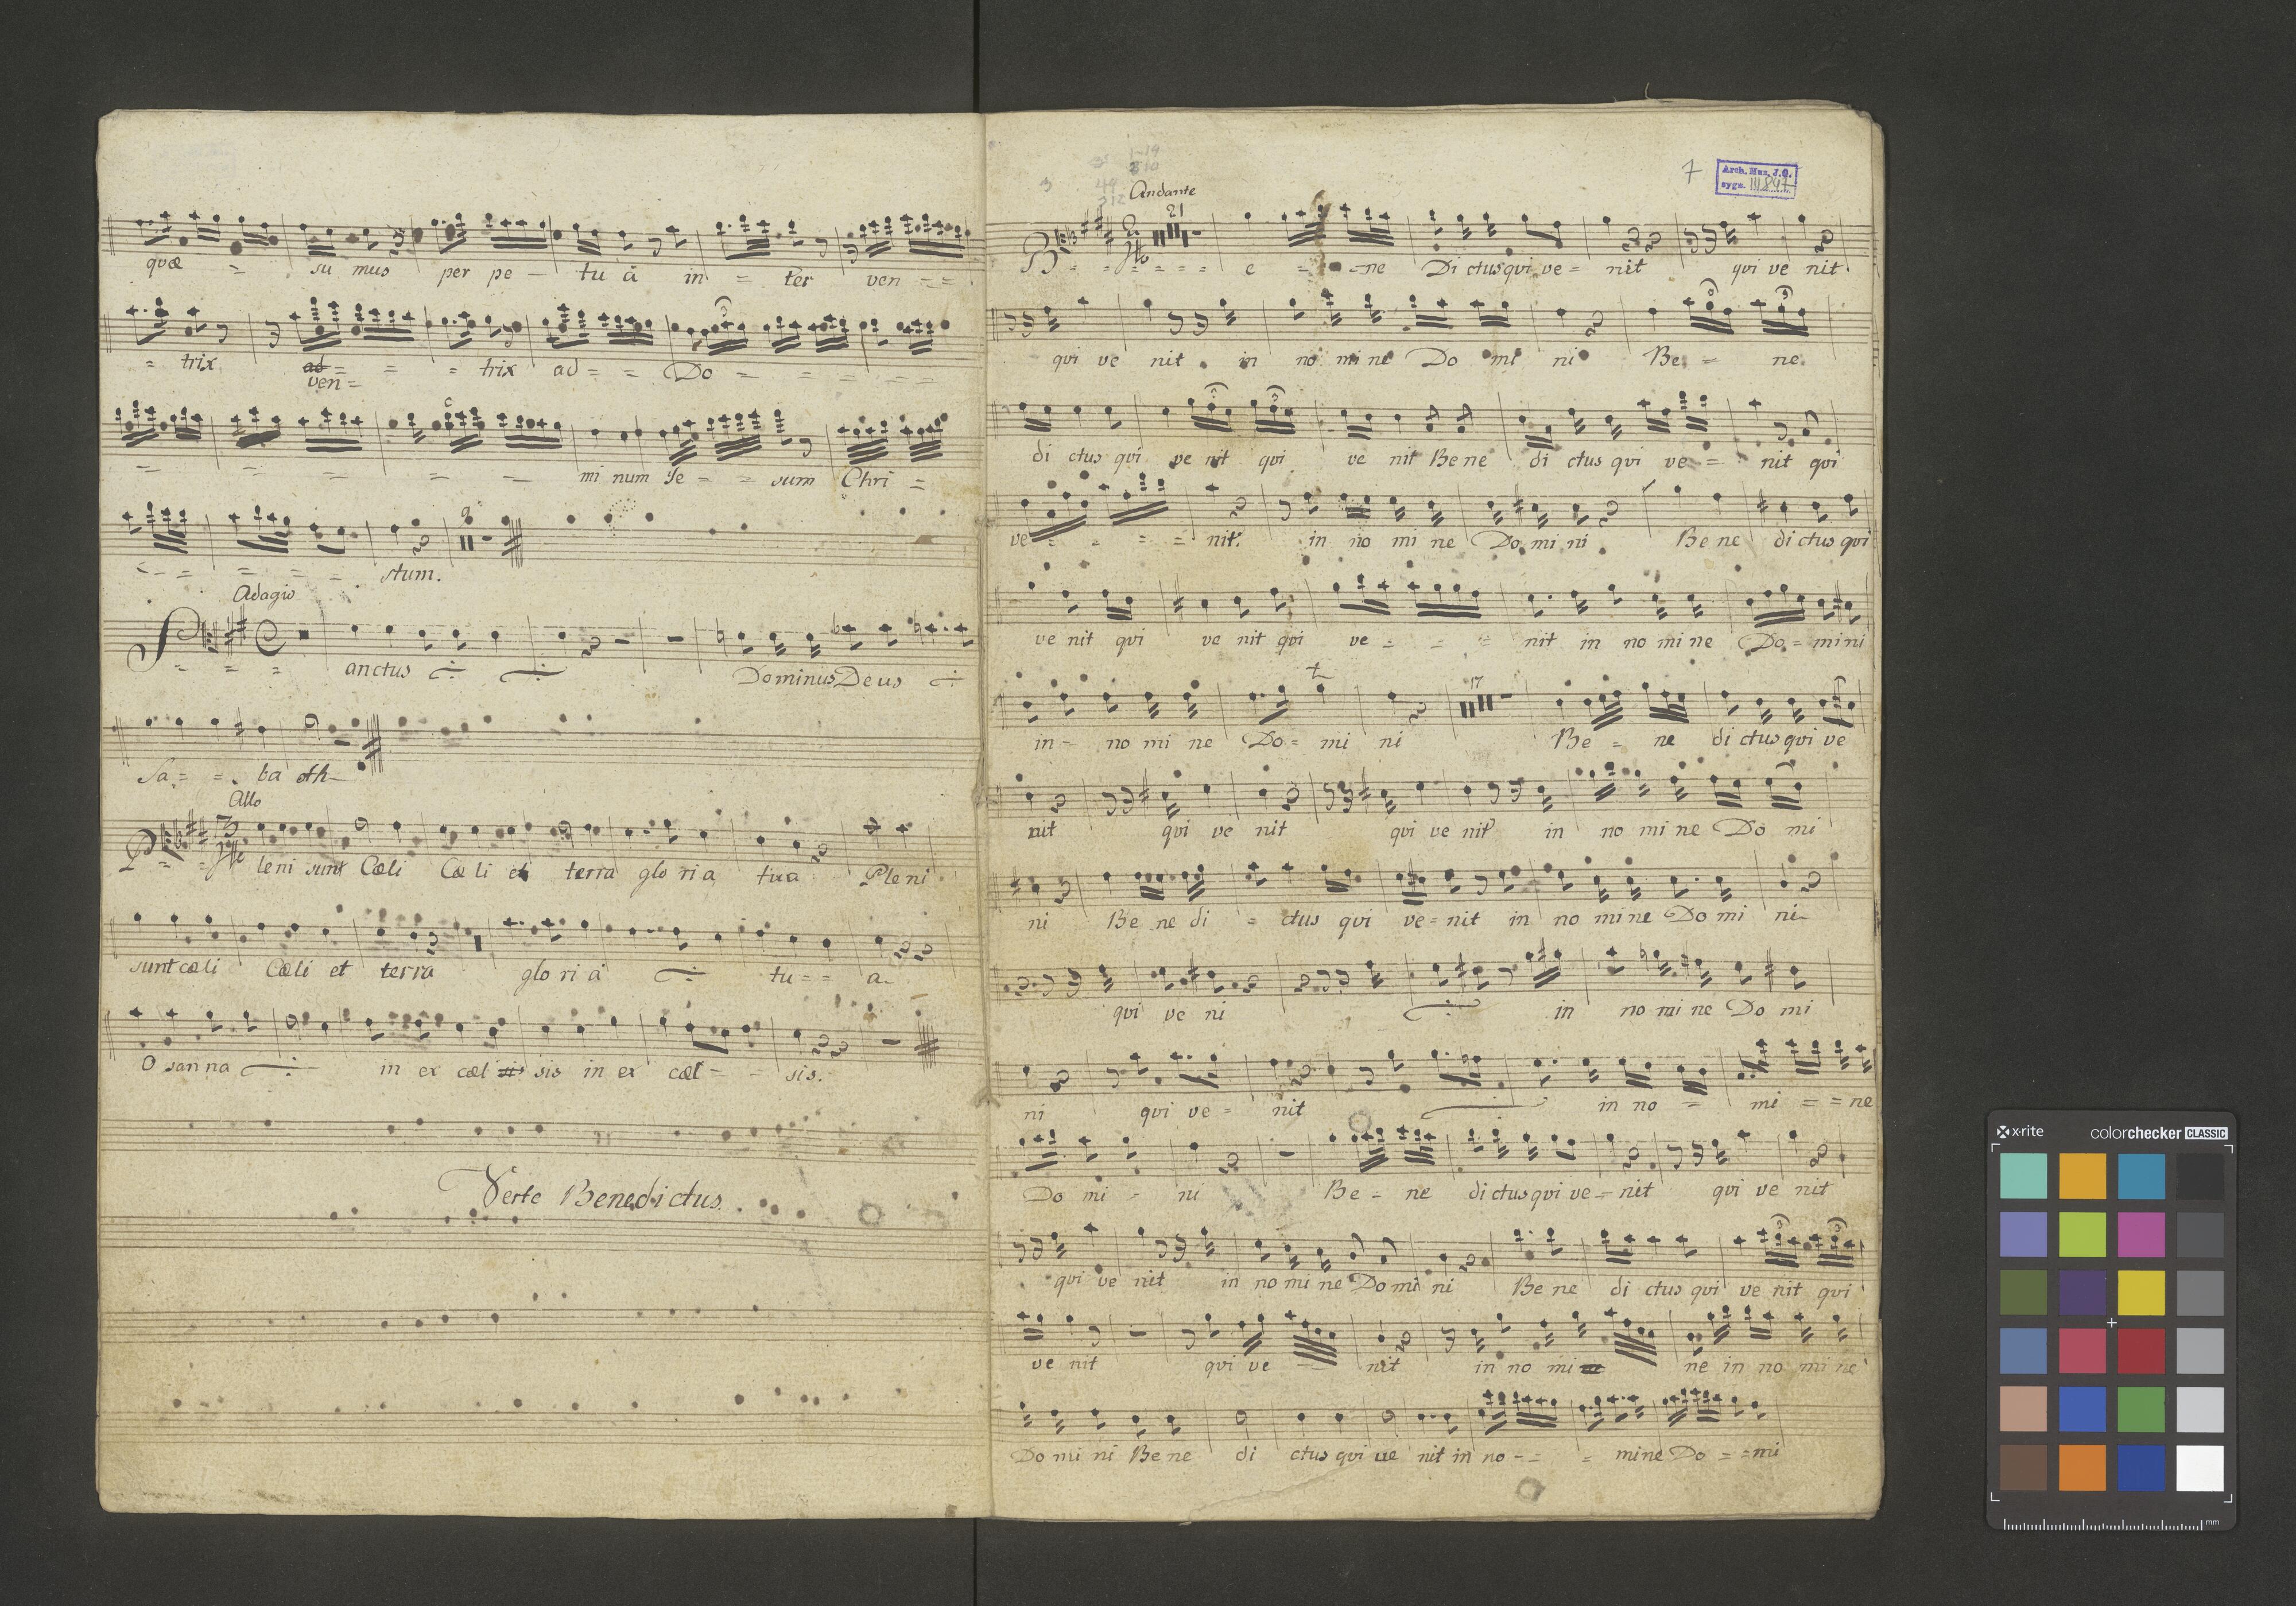 quæ = su mus per pe - tu â in = ter ven = =
= trix ad = = = trix ad = = Do = = = = =
ven =
= = = = - mi num Je = = sum Chri =
- = = = = stum.
Adagio
S = = = anctus Dominus Deus
Sa = = ba oth
Allo
P = = leni sunt Cæli Cæ li et terra glo ri a tua Pleni
sunt cæli Cæli et terra glo ri a tu = = a
O san na in ex cæl sis in ex cæl - - sis.
Verte Benedictus.
1-19
7
Arch. Muz. J.G.
sygn. III 847
Andante
21
B = = = = = e = = ne Di ctus qui ve = nit qui ve nit
qui ve nit in no mi ne Do mi ni Be = ne
di ctus qui ve nit qui ve nit Be ne di ctus qui ve = nit qui
ve = = = = nit. in no mi ne Do mi ni Be ne di ctus qui
ve nit qui ve nit qui ve = - = nit in no mi ne Do = mi ni
17
in - no mi ne Do = mi ni Be = ne di ctus qui ve
nit qui ve nit qui ve nit in no mi ne Do mi
ni Be ne di = ctus qui ve = nit in no mi ne Do mi ni
qui ve ni in no mi ne Do mi
ni qui ve = nit in no = mi = = ne
Do mi - ni Be = ne di ctus qui ve = nit qui ve nit
qui ve nit in no mi ne Do mi ni Be ne di ctus qui ve nit qui
ve nit qui ve - nit in no mi ne in no mi ne
Do mi ni Be ne di ctus qui ve nit in no - = = mi ne Do = = mi
x-rite colorchecker CLASSIC
mm